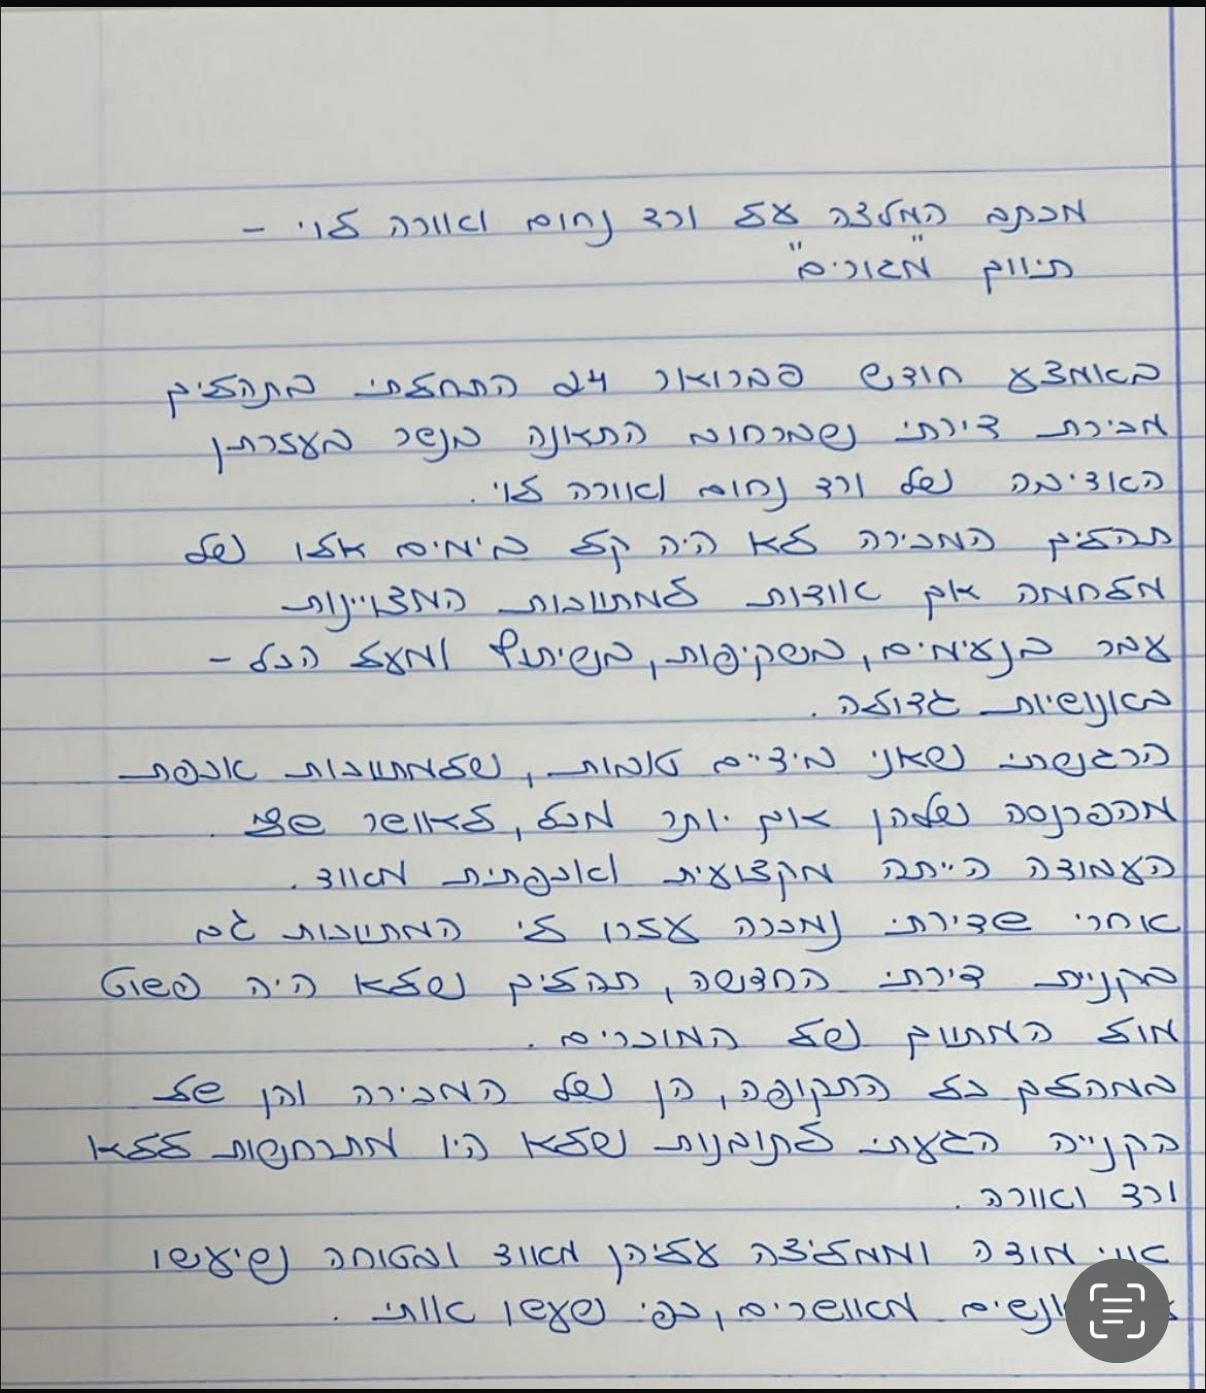 מכתב המלצה על ורד נחום ואוורה לוי -
תיווך "מגורים"
באמצע חודש פברואר 24 התחלתי בתהליך
מכירת דירתי שברחוב התאנה בנשר בעזרתן
האדיבה של ורד נחום ואוורה לוי.
תהליך המכירה לא היה קל בימים אלו של
מלחמה אך אודות למתווכות המצויינות
עבר בנעימים, בשקיפות, בשיתוף ומעל הכל -
באנושיות גדולה.
הרגשתי שאני בידיים טובות, שלמתווכות אכפת
מהפרנסה שלהן אך יותר מכל, לאושר שלי.
העבודה הייתה מקצועית ואכפתית מאוד.
אחרי שדירתי נמכרה עזרו לי המתווכות גם
בקניית דירתי החדשה, תהליך שלא היה פשוט
מול המתווך של המוכרים.
במהלך כל התקופה, הן של המכירה והן של
הקנייה הגעתי לתובנות שלא היו מתרחשות ללא
ורד ואוורה.
אני מודה וממליצה עליהן מאוד ובטוחה שיעשו
אנשים מאושרים, כפי שעשו אותי.